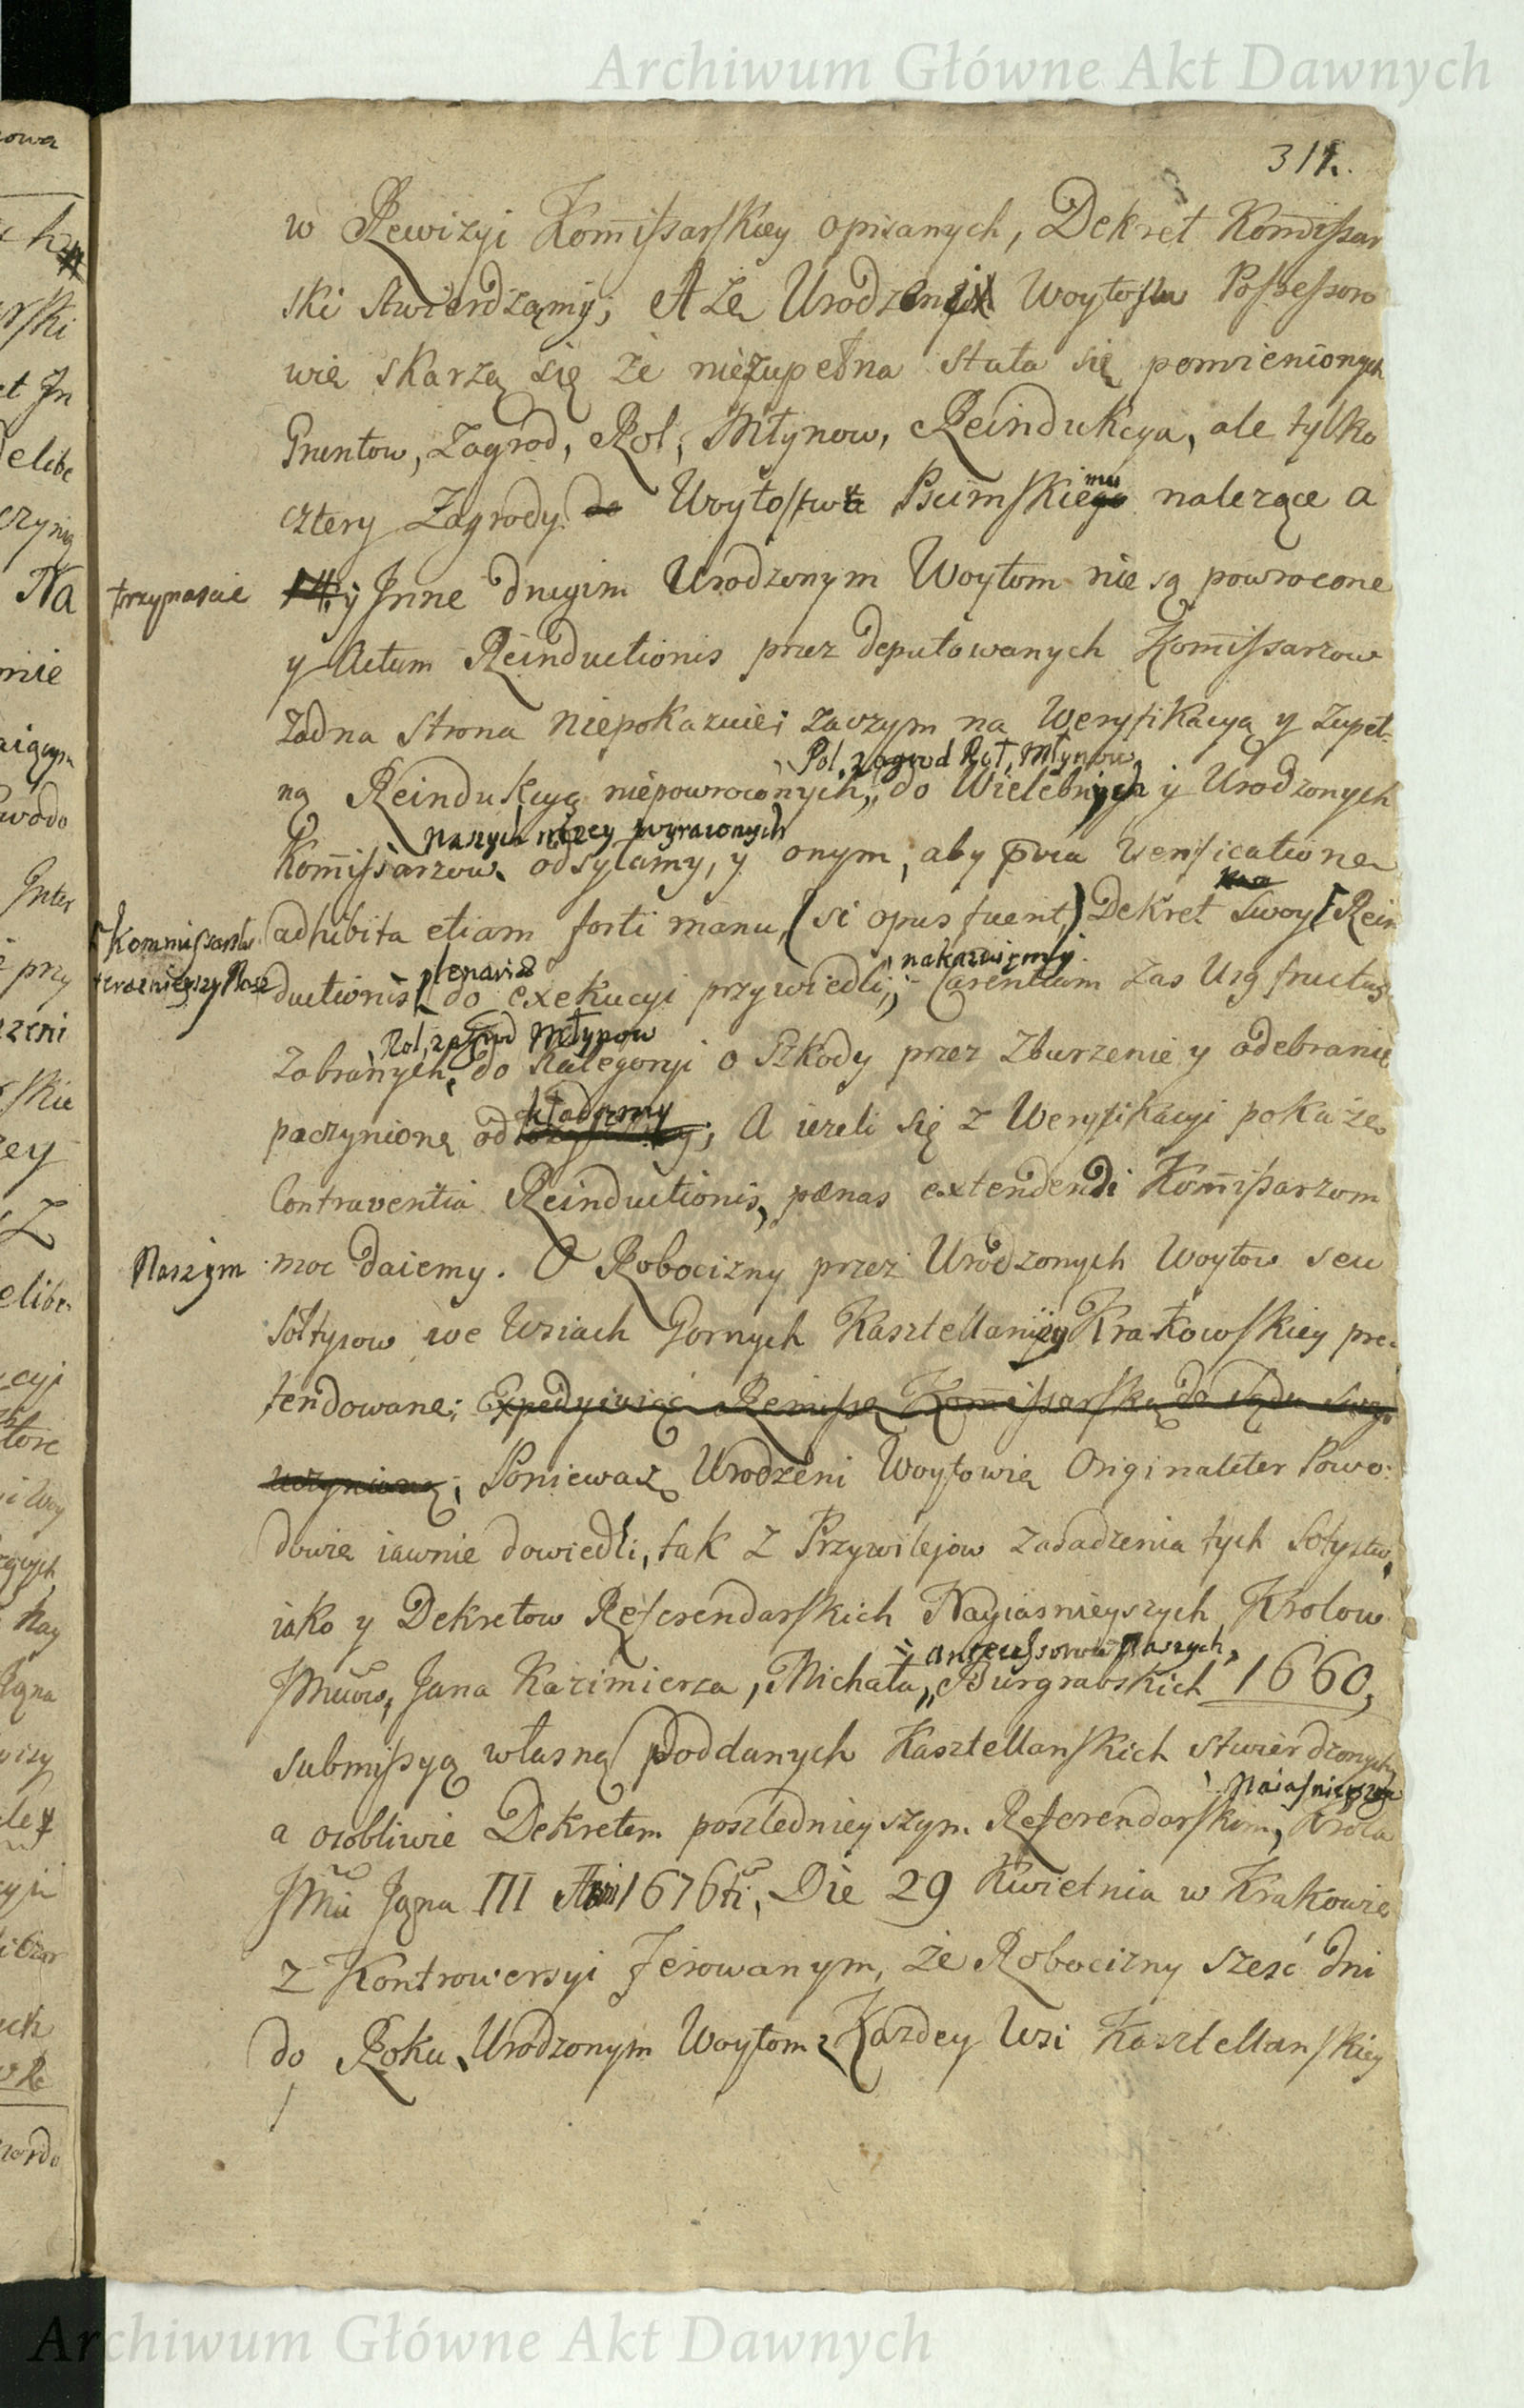 Archiwum Główne Akt Dawnych
311.
w Rewizyi Kommissarskiey opisanych, Dekret Kommissar
ski stwierdzamy; A że Urodzeni Woytostw Possessoro
wie skarzą się że niezupełna stała się pomienionych
Gruntow, Zagrod, Rol, Młynow, Reindukcya, ale tylko
cztery Zagrody do Woytostwu Pcimskiemu nalezące a
trzynascie
14. y Jnne drugim Urodzonym Woytom nie są powrocone
y Actum Reinductionis przez deputowanych Kommissarzow
żadna strona niepokazuie; zaczym na Weryfikacyą y zupeł-
Pol, zagrod Rol, Młynow
ną Reindukcyą niepowroconych, do Wielebnych y Urodzonych
naszych nizey wyrazonych
Kommissarzow odsyłamy, y onym, aby pvia Verificatione
Kommissarze
teraznieyszy Nasi
adhibita etiam forti manu, (si opus fuerit,) Dekret Swoy Rein
plenarie
nakazuiemy
ductionis do exekucyi przywiedli, Carentiam zas Usq fructus
Rol, zagrod Młynow
Zabranych, do Kategoryi o Szkody przez Zburzenie y odebranie
kładamy
poczynione od; A iezeli się z Weryfikacyi pokaże
Contraventia Reinductionis, pænas extendendi Kommissarzom
Naszym
moc daiemy. O Robocizny przez Urodzonych Woytow seu
Sołtysow we Wsiach Gornych Kasztellanii Krakowskiey pre-
tendowane; Expedyiuiąc Remissę Kommissarską do Sądu Swego
uczynioną; Poniewaz Urodzeni Woytowie Originaliter Powo-
dowie iawnie dowiedli, tak z Przywilejow zasadzenia tych Sołtystw,
iako y Dekretow Referendarskich Nayiasnieyszych Krolow
antecessorow Naszych,
Jmciow, Jana Kazimierza, Michała, Burgrabskich 1660,
submissyą własną poddanych Kasztellanskich stwierdzonych
Naiasnieyszego
a osobliwie Dekretem poslednieyszym Referendarskim, Krola
Jmci Jana III Anni 1676ti, Die 29 Kwietnia w Krakowie
z Kontrowersyi ferowanym, że Robocizny sześć dni
do Roku, Urodzonym Woytom z Kazdey Wsi Kasztellanskiey
Archiwum Główne Akt Dawnych